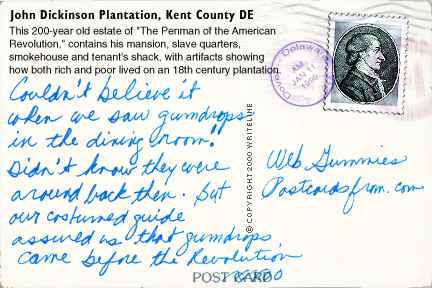 John Dickinson Plantation, Kent County DE
This 200-year old estate of "The Penman of the American
Revolution," contains his mansion, slave quarters,
smokehouse and tenant's shack, with artifacts showing
how both rich and poor lived on an 18th century plantation.
Couldn't believe it
when we saw gumdrops
in the dining room!
Didn't know they were
around back then. But
our costumed guide
assured us that gumdrops
came before the Revolution
Delaware
AM
JAN 11
© COPYRIGHT 2000 WRITELINE
Web Gummies
Postcardsfrom.com
POST CARD